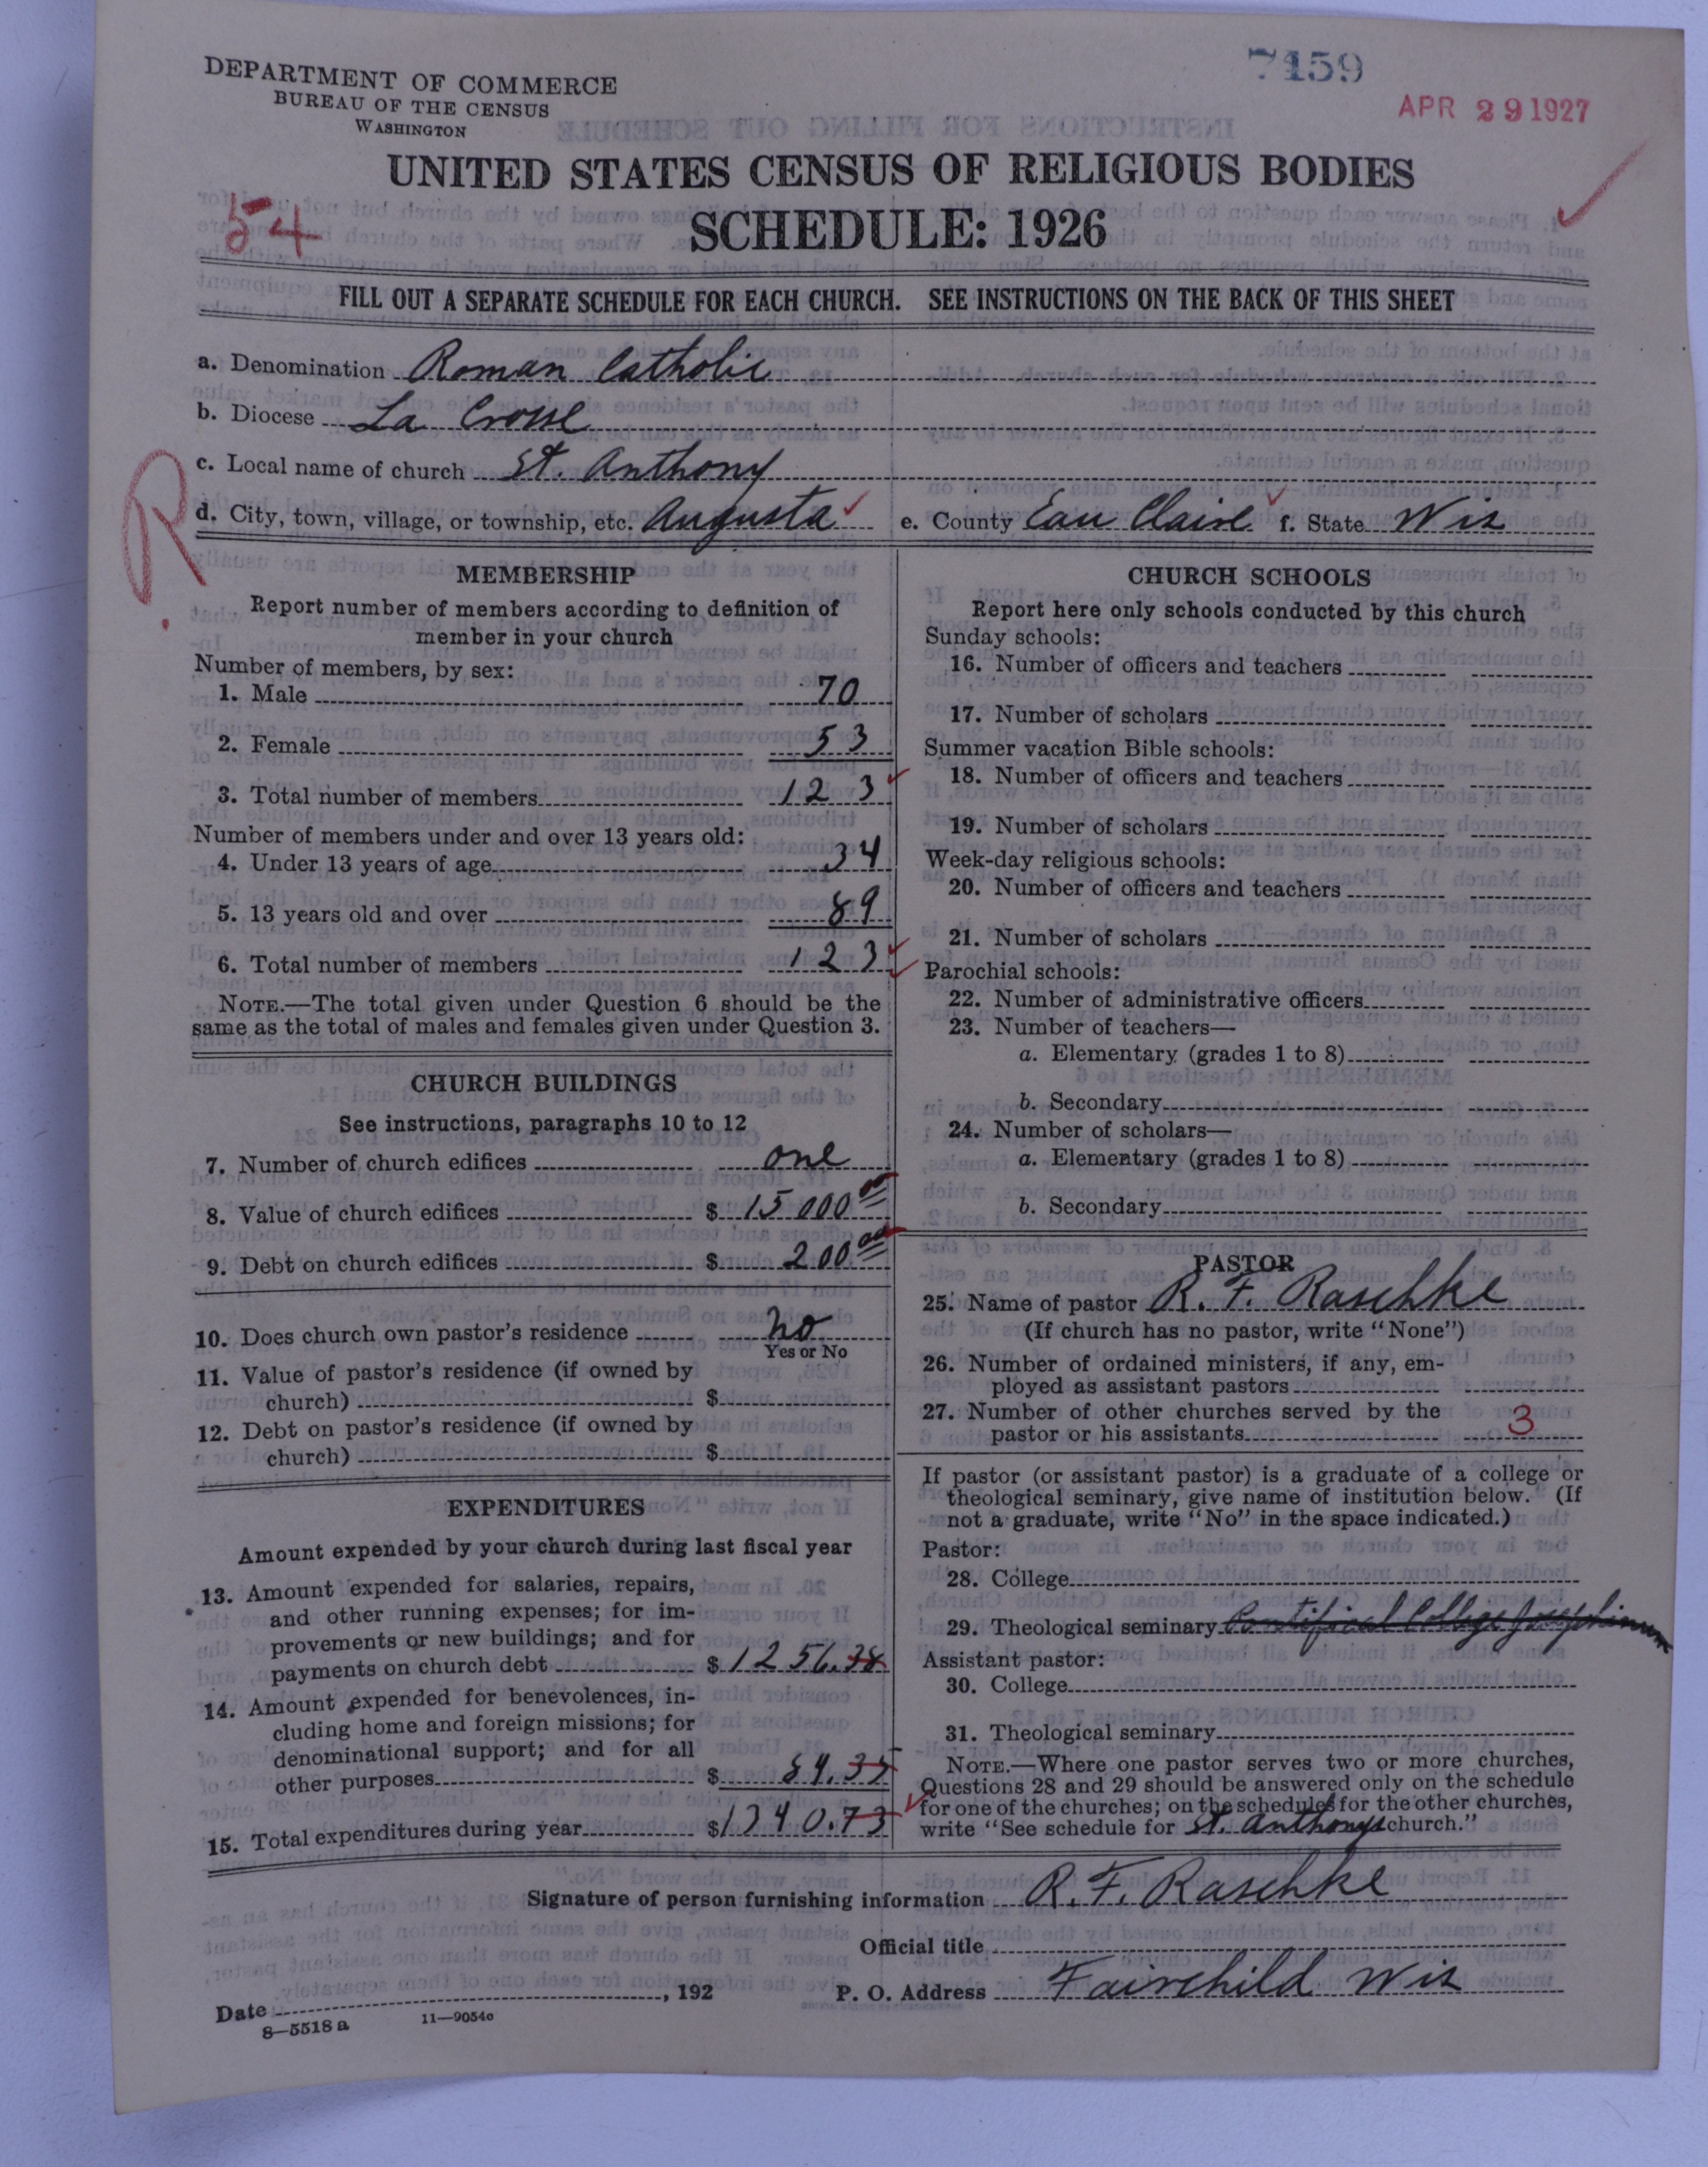 DEPARTMENT OF COMMERCE
BUREAU OF THE CENSUS
WASHINGTON
7459
APR 29 1927
UNITED STATES CENSUS OF RELIGIOUS BODIES
54
SCHEDULE: 1926
FILL OUT A SEPARATE SCHEDULE FOR EACH CHURCH. SEE INSTRUCTIONS ON THE BACK OF THIS SHEET
a. Denomination Roman Catholic
b. Diocese La Crosse
c. Local name of church St. Anthony
R.
d. City, town, village, or township, etc. Augusta e. County Eau Claire f. State Wis
MEMBERSHIP
Report number of members according to definition of
member in your church
Number of members, by sex:
1. Male 70
2. Female 53
3. Total number of members 123
Number of members under and over 13 years old:
4. Under 13 years of age 34
5. 13 years old and over 89
6. Total number of members 123
NOTE.—The total given under Question 6 should be the
same as the total of males and females given under Question 3.
CHURCH BUILDINGS
See instructions, paragraphs 10 to 12
7. Number of church edifices one
8. Value of church edifices $ 15 000 00
9. Debt on church edifices $ 200 00
10. Does church own pastor's residence No
Yes or No
11. Value of pastor's residence (if owned by
church) $
12. Debt on pastor's residence (if owned by
church) $
EXPENDITURES
Amount expended by your church during last fiscal year
13. Amount expended for salaries, repairs,
and other running expenses; for im-
provements or new buildings; and for
payments on church debt $ 1256.38
14. Amount expended for benevolences, in-
cluding home and foreign missions; for
denominational support; and for all
other purposes $ 84.35
15. Total expenditures during year $ 1340.73
CHURCH SCHOOLS
Report here only schools conducted by this church
Sunday schools:
16. Number of officers and teachers
17. Number of scholars
Summer vacation Bible schools:
18. Number of officers and teachers
19. Number of scholars
Week-day religious schools:
20. Number of officers and teachers
21. Number of scholars
Parochial schools:
22. Number of administrative officers
23. Number of teachers—
a. Elementary (grades 1 to 8)
b. Secondary
24. Number of scholars—
a. Elementary (grades 1 to 8)
b. Secondary
PASTOR
25. Name of pastor R. F. Raschke
(If church has no pastor, write "None")
26. Number of ordained ministers, if any, em-
ployed as assistant pastors
27. Number of other churches served by the
pastor or his assistants 3
If pastor (or assistant pastor) is a graduate of a college or
theological seminary, give name of institution below. (If
not a graduate, write "No" in the space indicated.)
Pastor:
28. College
29. Theological seminary Pontifical College Josephinum
Assistant pastor:
30. College
31. Theological seminary
NOTE.—Where one pastor serves two or more churches,
Questions 28 and 29 should be answered only on the schedule
for one of the churches; on the schedules for the other churches,
write "See schedule for St. Anthonys church."
Signature of person furnishing information R. F. Raschke
Official title
Date , 192 P. O. Address Fairchild Wis
8—5518 a 11—9054c